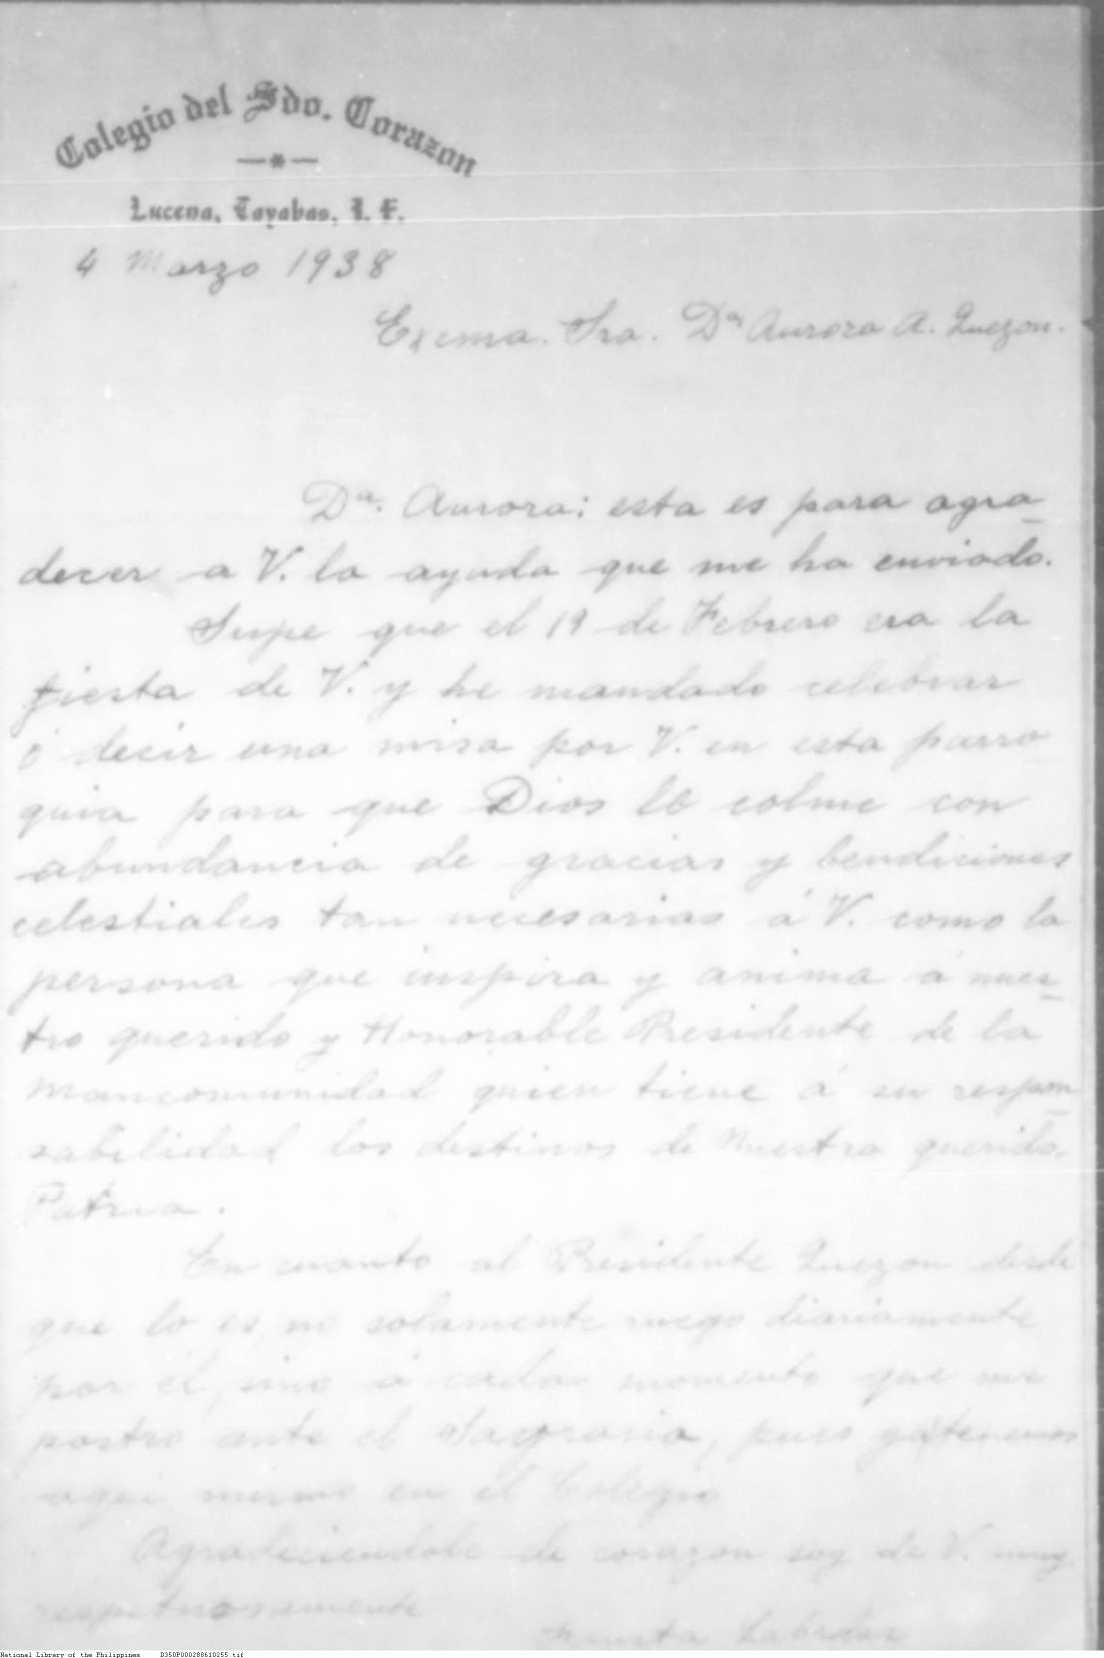 Colegio del Sdo. Corazon
Lucena, Tayabas, I. F.
4 Marzo 1938
Excma. Sra. Dª Aurora A. Quezon.
Dª. Aurora: esta es para agra-
decer a V. la ayuda que me ha enviado.
Supe que el 19 de Febrero era la
fiesta de V. y he mandado celebrar
ó decir una misa por V. en esta parro
quia para que Dios le colme con
abundancia de gracias y bendiciones
celestiales tan necesarias á V. como la
persona que inspira y anima á nues-
tro querido y Honorable Presidente de la
Mancomunidad quien tiene á su respon-
sabilidad los destinos de Nuestra querida
Patria.
En cuanto al Presidente Quezon desde
que lo es, no solamente ruego diariamente
por él, sino á cada momento que me
postro ante el Sagrario, pues ya tenemos
aqui mismo en el Colegio
Agradeciendole de corazon soy de V. muy
respetuosamente